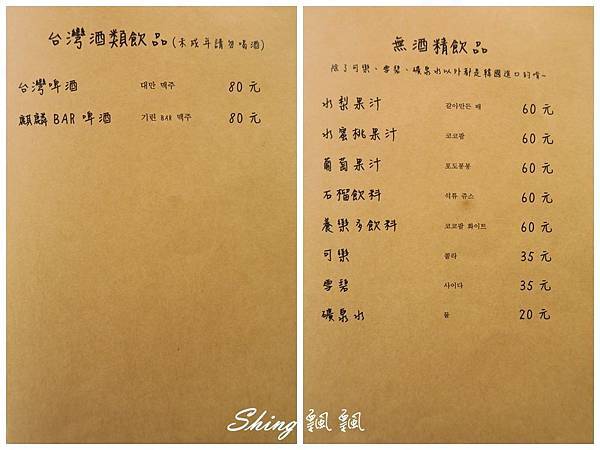 台灣酒類飲品(未成年請勿喝酒)
台灣啤酒 대만 맥주 80 元
麒麟BAR啤酒 기린 BAR 맥주 80 元
無酒精飲品
除了可樂、雪碧、礦泉水以外都是韓國進口的唷~
水梨果汁 갈아만든 배 60 元
水蜜桃果汁 코코팜 60 元
葡萄果汁 포도봉봉 60 元
石榴飲料 석류 쥬스 60 元
養樂多飲料 코코팜 화이트 60 元
可樂 콜라 35 元
雪碧 사이다 35 元
礦泉水 물 20 元
Shing 飄飄